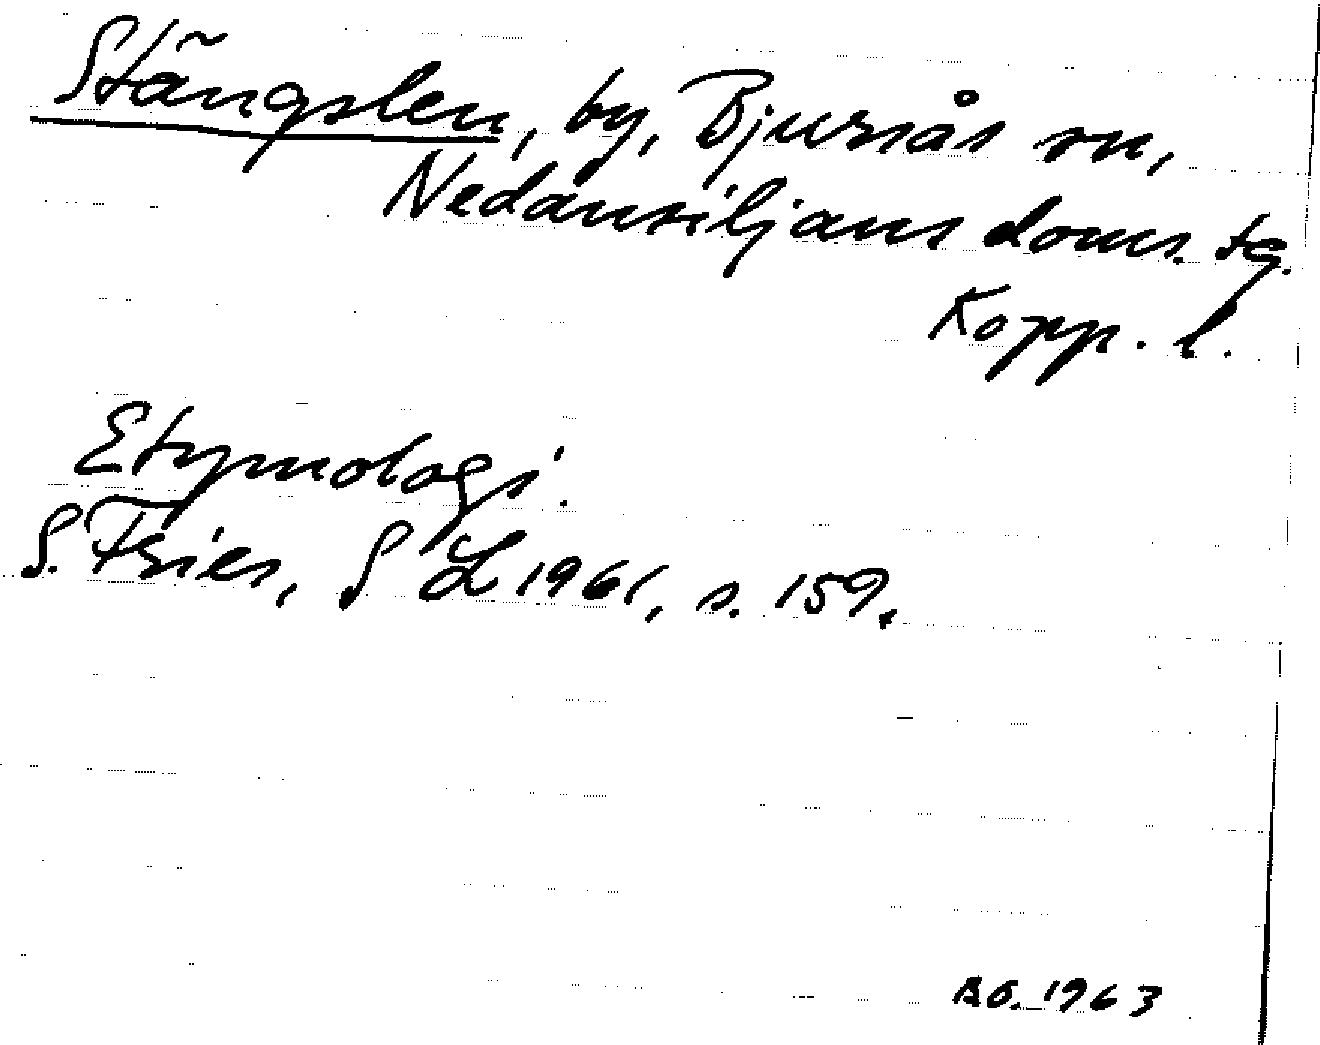 Stängslen, by, Bjursås sn,
Nedansiljans doms. tg.
Kopp. l.
Etymologi.
S. Fries, SL 1961, s. 159.
BÖ. 1963